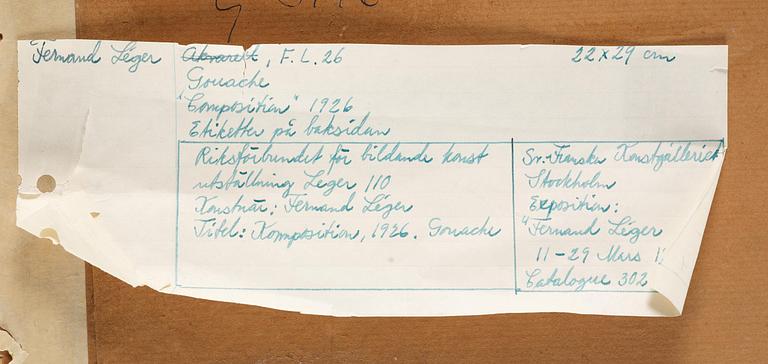 Fernand Léger
Akvarell, F. L. 26
22 x 29 cm
Gouache
"Composition" 1926
Etiketter på baksidan
Riksförbundet för bildande konst
utställning Leger 110
Konstnär: Fernand Léger
Titel: Komposition, 1926. Gouache
Sv. Franska Konstgalleriet
Stockholm
Exposition:
"Fernand Léger
11-29 Mars
Catalogue 302